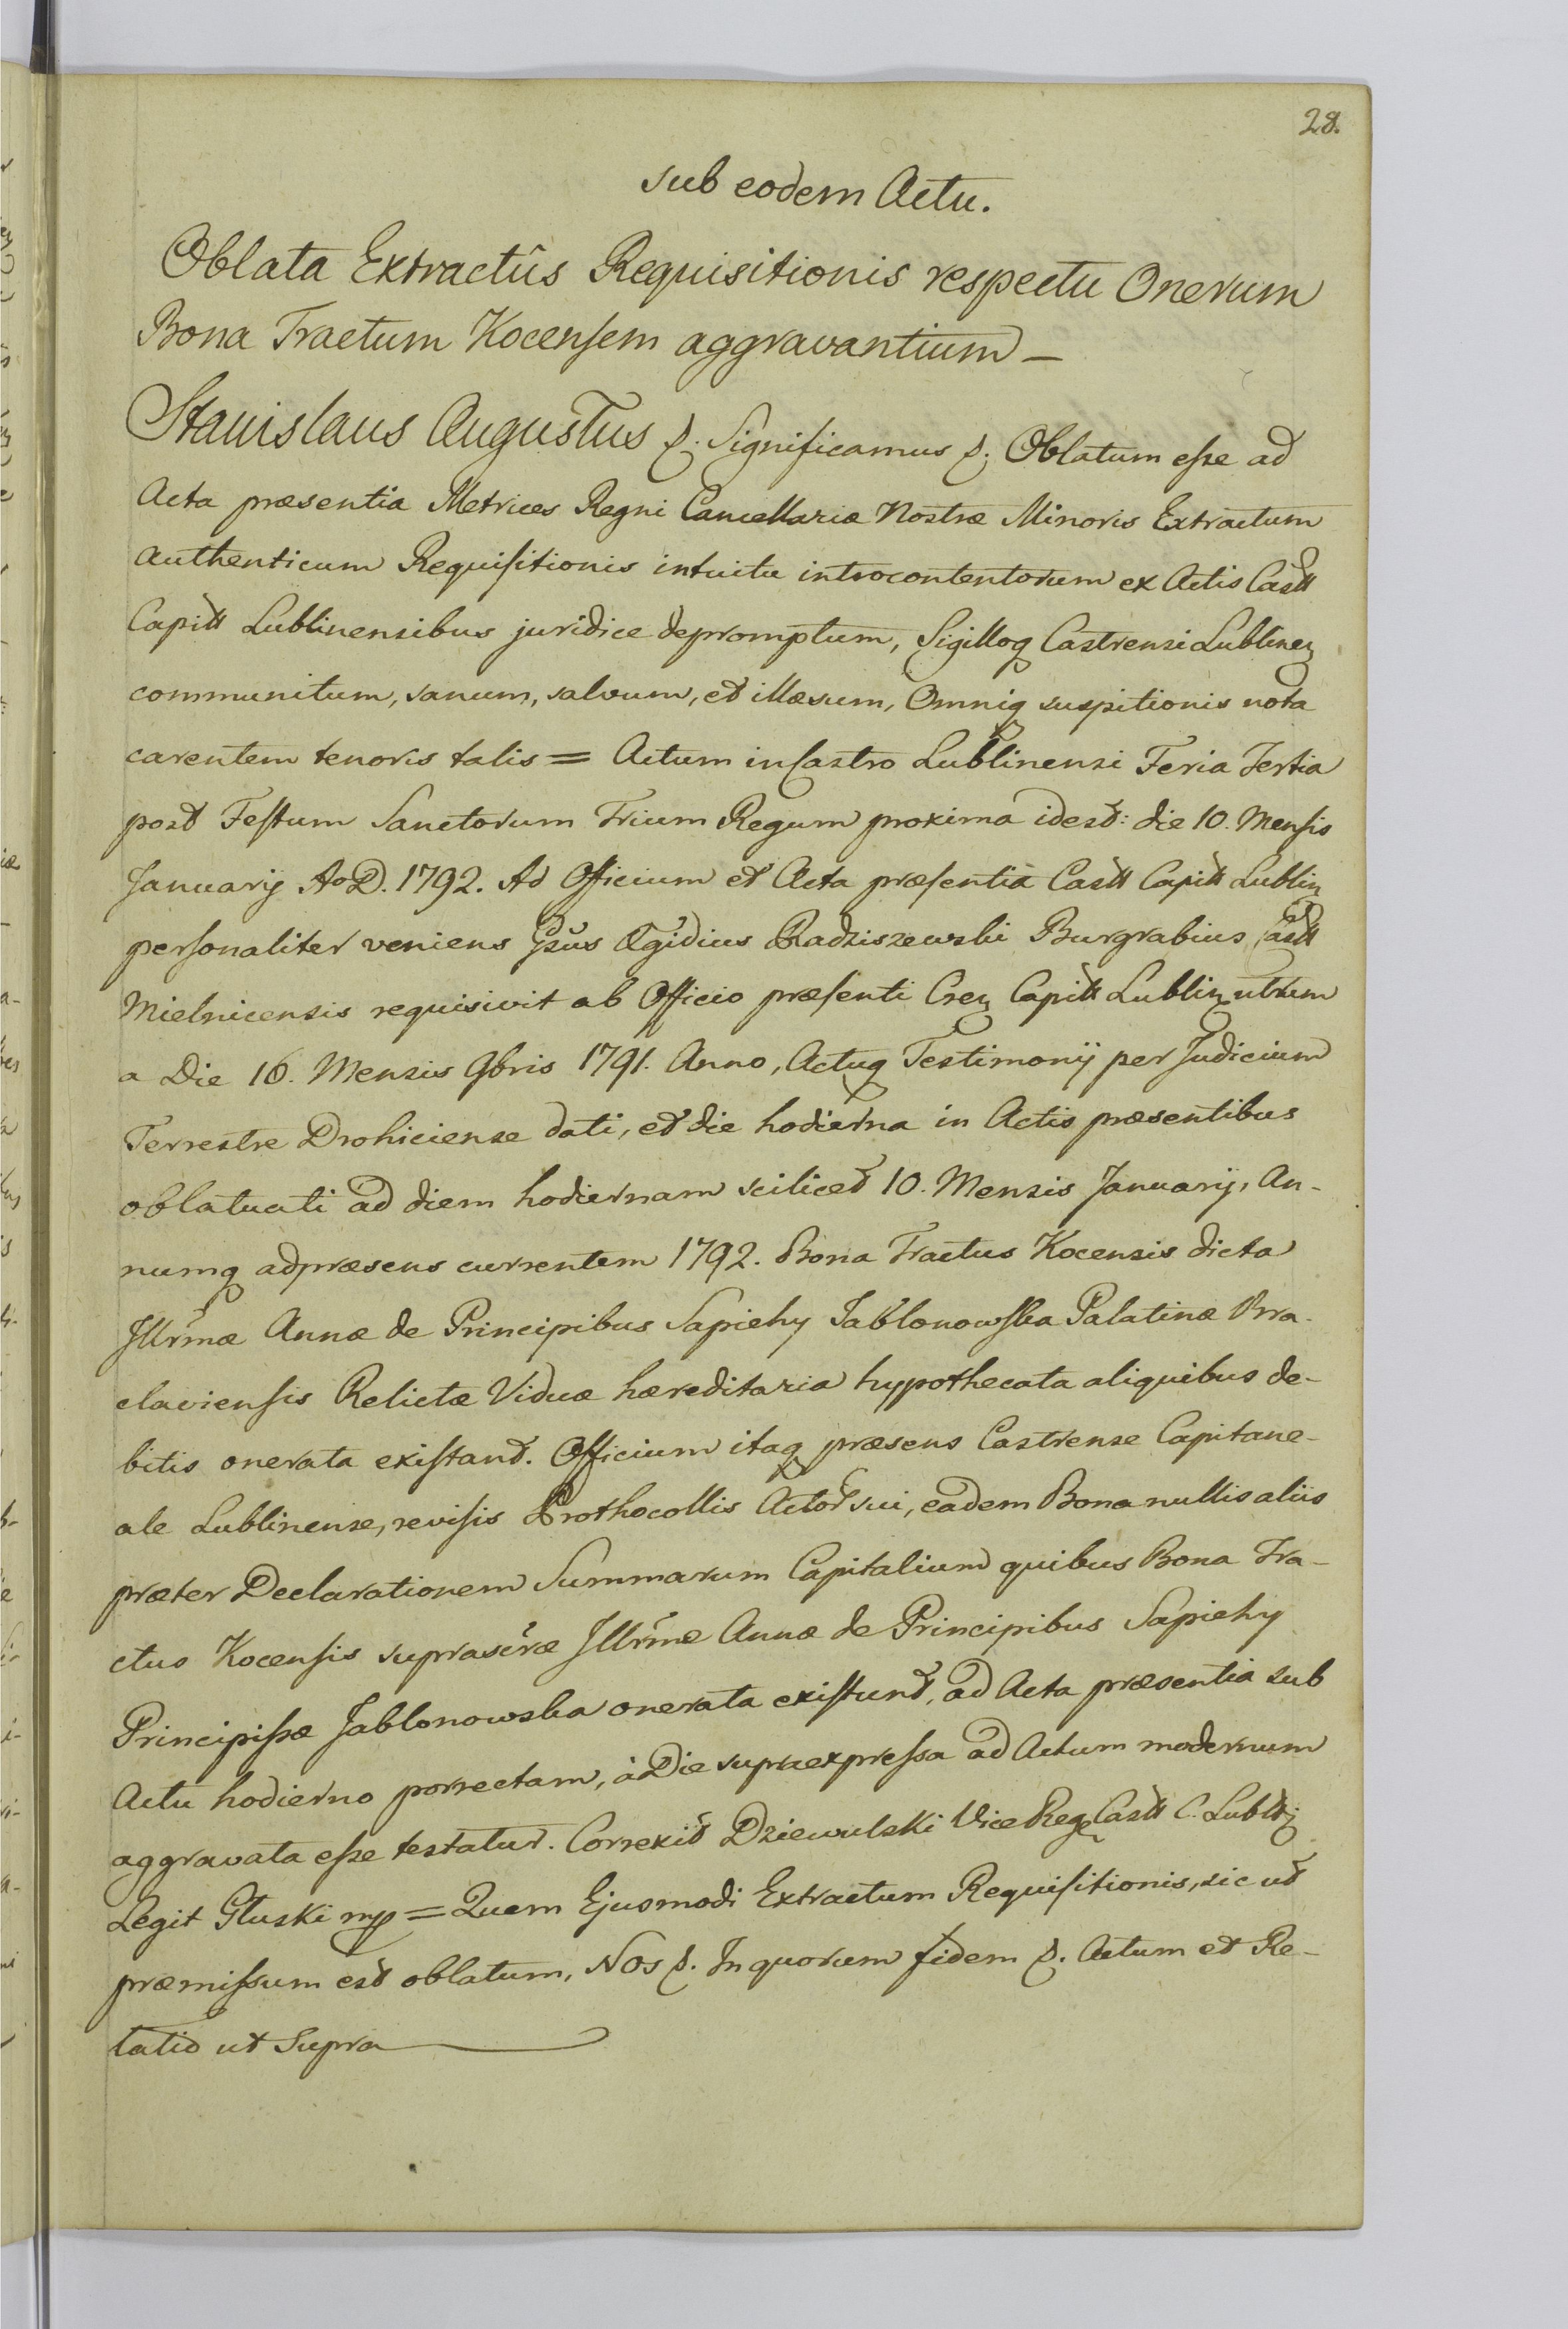 28.
sub eodem Actu.
Oblata Extractûs Requisitionis respectu Onerum
Bona Tractum Kocensem aggravantium –
Stanislaus Augustus &. Significamus &. Oblatum esse ad
Acta præsentia Metrices Regni Cancellariæ Nostræ Minoris Extractum
authenticum Requisitionis intuitu introcontentorum ex Actis Castt
Capitt Lublinensibus juridice depromptum, Sigilloq Castrensi Lublinen
communitum, sanum, salvum, et illæsum, Omniq suspitionis nota
carentem tenoris talis = Actum in Castro Lublinensi Feria Tertia
post Festum Sanctorum Trium Regum proxima idest: die 10. Mensis
Januarij Ao D. 1792. Ad Officium et Acta præsentia Castt Capitt Lublin
personaliter veniens Gsus Ægidius Radziszewski Burgrabius Castt
Mielnicensis requisivit ab Officio præsenti Cren Capitt Lublin utrum
a Die 16. Mensis 9bris 1791. Anno, Actuq Testimonij per Judicium
Terrestre Drohiciense dati, et die hodierna in Actis præsentibus
oblatuati ad diem hodiernam scilicet 10. Mensis Januarij, An-
numq adpræsens currentem 1792. Bona Tractus Kocensis dicta
Illrmæ Annæ de Principibus Sapiehy Jabłonowska Palatinæ Bra-
claviensis Relictæ Viduæ hæreditaria hypothecata aliquibus de-
bitis onerata existant. Officium itaq præsens Castrense Capitane-
ale Lublinense, revisis Prothocollis Actor sui, eadem Bona nullis aliis
præter Declarationem Summarum Capitalium quibus Bona Tra-
ctus Kocensis suprascræ Illrmæ Annæ de Principibus Sapiehy
Principissæ Jabłonowska onerata existunt, ad Acta præsentia sub
Actu hodierno porrectam, à Die supraexpressa ad Actum modernum
aggravata esse testatur. Correxit Dziewulski Vice Reg Castt C. Lubll
Legit Głuski mp = Quem Ejusmodi Extractum Requisitionis, sic ut
præmissum est oblatum, Nos &. In quorum fidem &. Actum et Re-
latio ut Supra